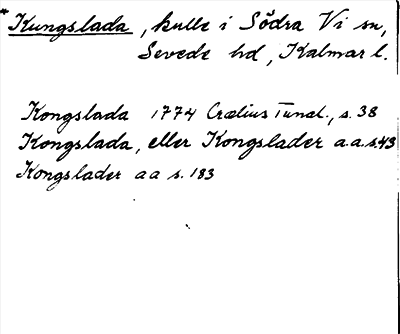 *Kungslada, kulle i Södra Vi sn,
Sevede hd, Kalmar l.
Kongslada 1774 Crælius Tunal., s. 38
Kongslada, eller Kongslader a.a. s. 43
Kongslader a a s. 183